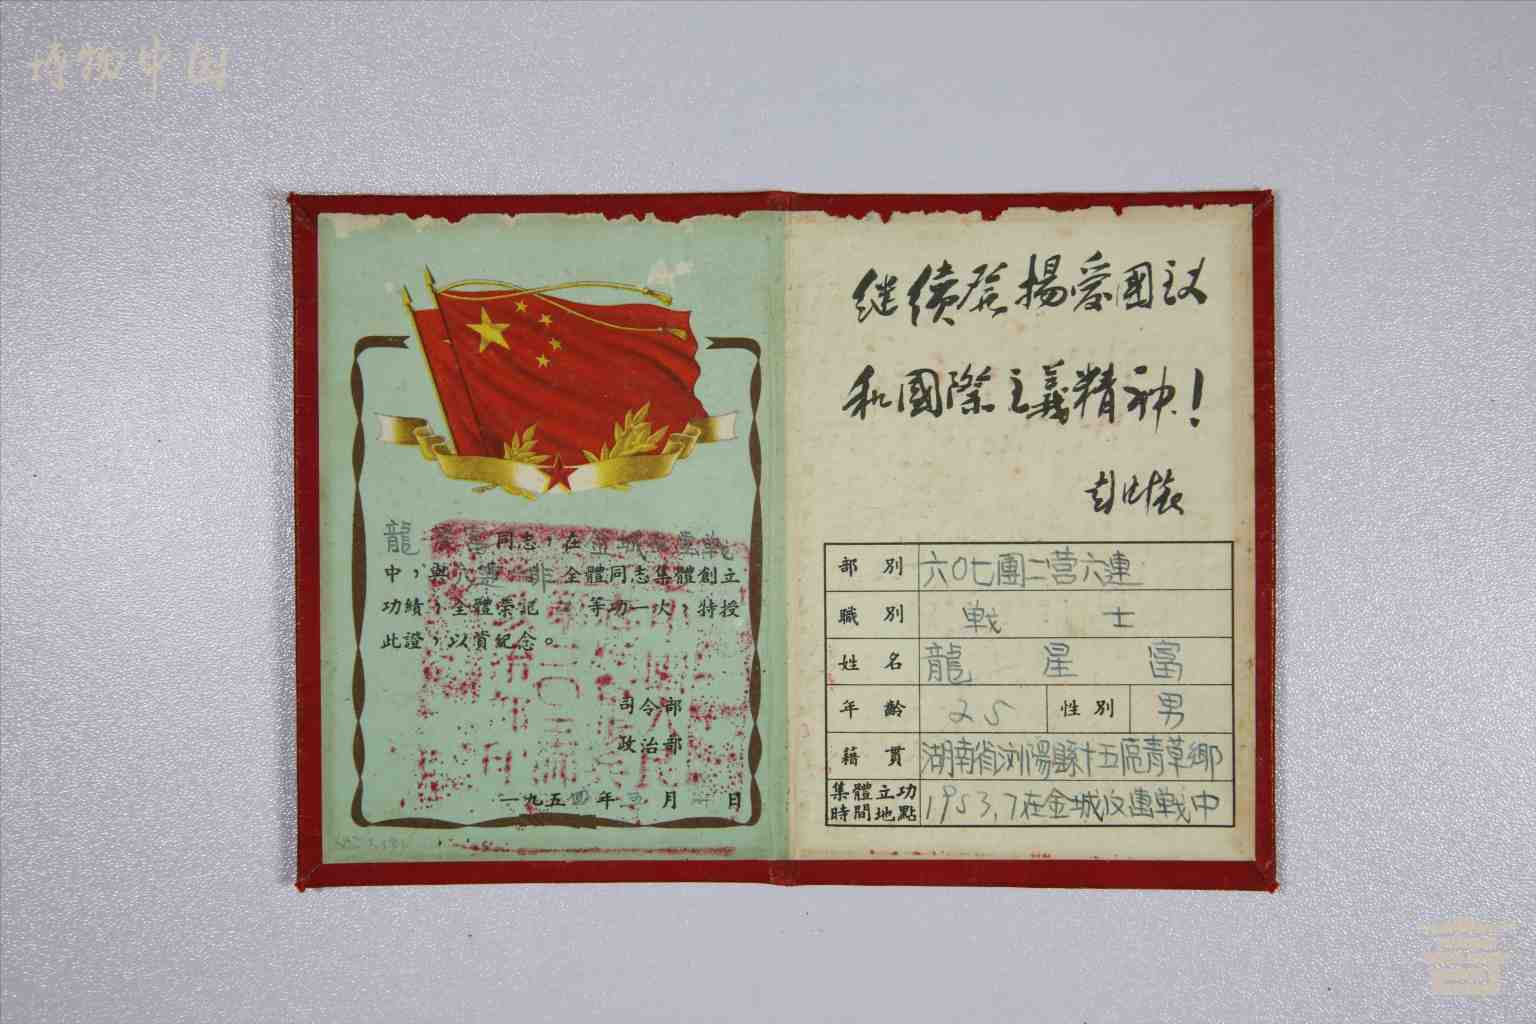 博物中国
龍星富同志，在金城反擊戰
中，與六連一排全體同志集體創立
功績，全體榮記等功一次，特授
此證，以資紀念。
司令部
政治部
一九五四年五月日
继續發揚愛國主义
和國際主義精神！
彭德懷
部別 六〇七團二营六連
職別 戰士
姓名 龍星富
年齡 25 性別 男
籍貫 湖南省浏陽縣十五區青草鄉
集體立功時間地點 1953.7在金城反擊戰中